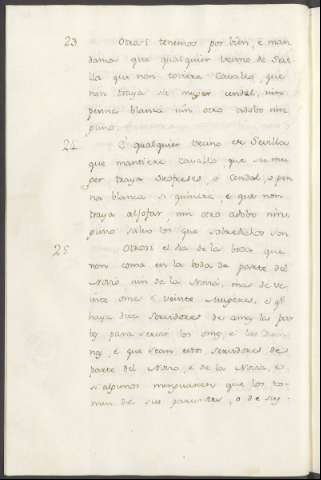 23 Otrosi tenemos por bien, e man
damos que qualquier vecino de Sevi
lla que non toviere Cavallo, que
non traya su muger cendal, nin
penna blanca nin otro adobo nin
guno.
24 E qualquier vecino de Sevilla
que mantiere Cavallo que su mu
ger traya cendal, o pen
na blanca si quisiere, e que non
traya aljofar nin otro adobo nin
guno salvo los que sobredichos son
25 Otrosi el dia de la boda que
non coma en la boda de parte del
Novio, nin de la Novia, mas de ve
inte omes e veinte Mugeres, e q̃
haya dies servidores de amas las par
tes para servir los omes, e las
que sean estos servidores de
parte del Novio, e de la Novia, e
si algunos que los to
men de sus parientes, o de sus